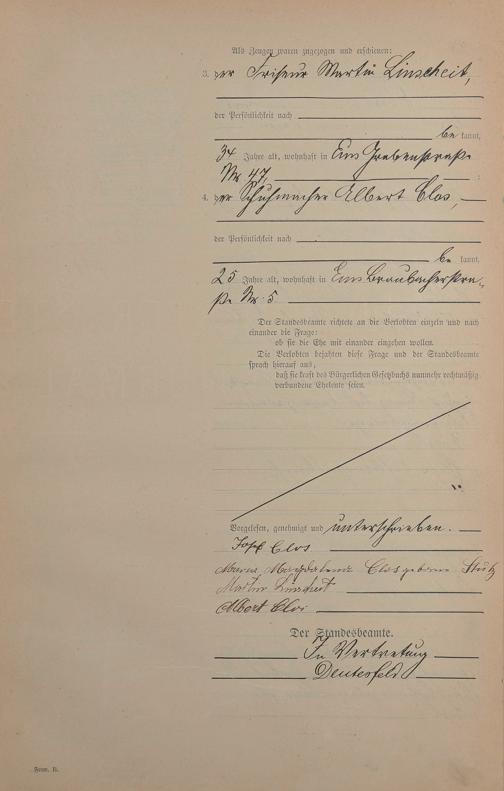 Als Zeugen waren zugezogen und erschienen:
3. der Friseur Martin Linscheit,
der Persönlichkeit nach
be kannt,
34 Jahre alt, wohnhaft in Ems Grabenstraße
Nr. 47,
4. der Schuhmacher Albert Clos,
der Persönlichkeit nach
be kannt,
25 Jahre alt, wohnhaft in Ems Braubacherstra-
ße Nr. 5
Der Standesbeamte richtete an die Verlobten einzeln und nach
einander die Frage:
ob sie die Ehe mit einander eingehen wollen.
Die Verlobten bejahten diese Frage und der Standesbeamte
sprach hierauf aus,
daß sie kraft des Bürgerlichen Gesetzbuchs nunmehr rechtmäßig
verbundene Eheleute seien.
Vorgelesen, genehmigt und unterschrieben.
Josef Clos
Maria Magdalena Clos geborene Stutz
Martin Linscheit
Albert Clos
Der Standesbeamte.
In Vertretung
Deutesfeld
Form. B.